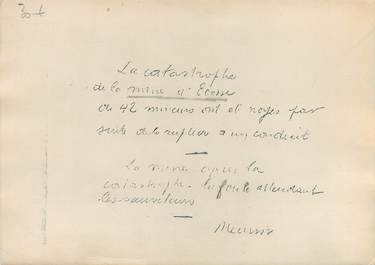 La catastrophe
de la mine d'Ecosse
où 42 mineurs ont été noyés par
suite de la rupture d'un conduit
La mine après la
catastrophe. la foule attendant
les sauveteurs
Meurisse